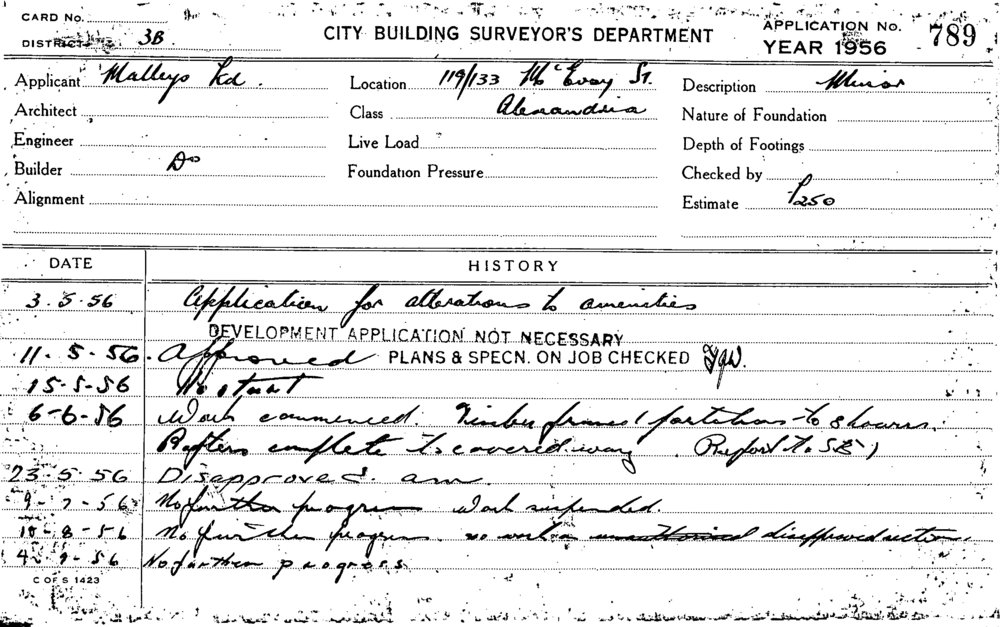 CARD No.
DISTRICT 3B
CITY BUILDING SURVEYOR'S DEPARTMENT
APPLICATION No. 789
YEAR 1956
Applicant Malleys Ltd.
Location 119/133 McEvoy St.
Description Minor
Architect
Class Alexandria
Nature of Foundation
Engineer
Live Load
Depth of Footings
Builder Do
Foundation Pressure
Checked by
Alignment
Estimate £250
DATE HISTORY
3.5.56 Application for alterations to amenities
DEVELOPMENT APPLICATION NOT NECESSARY
11-5-56. Approved PLANS & SPECN. ON JOB CHECKED
15-5-56 No start
6-6-56 Work commenced. Timber frames / partitions to showers.
Rafters complete to covered way (Report to S.B.)
23.5.56 Disapproved.
9-7-56 No further progress Work suspended.
10-8-56 No further progress. no work on unauthorised disapproved section.
4-9-56 No further progress
C OF S 1423